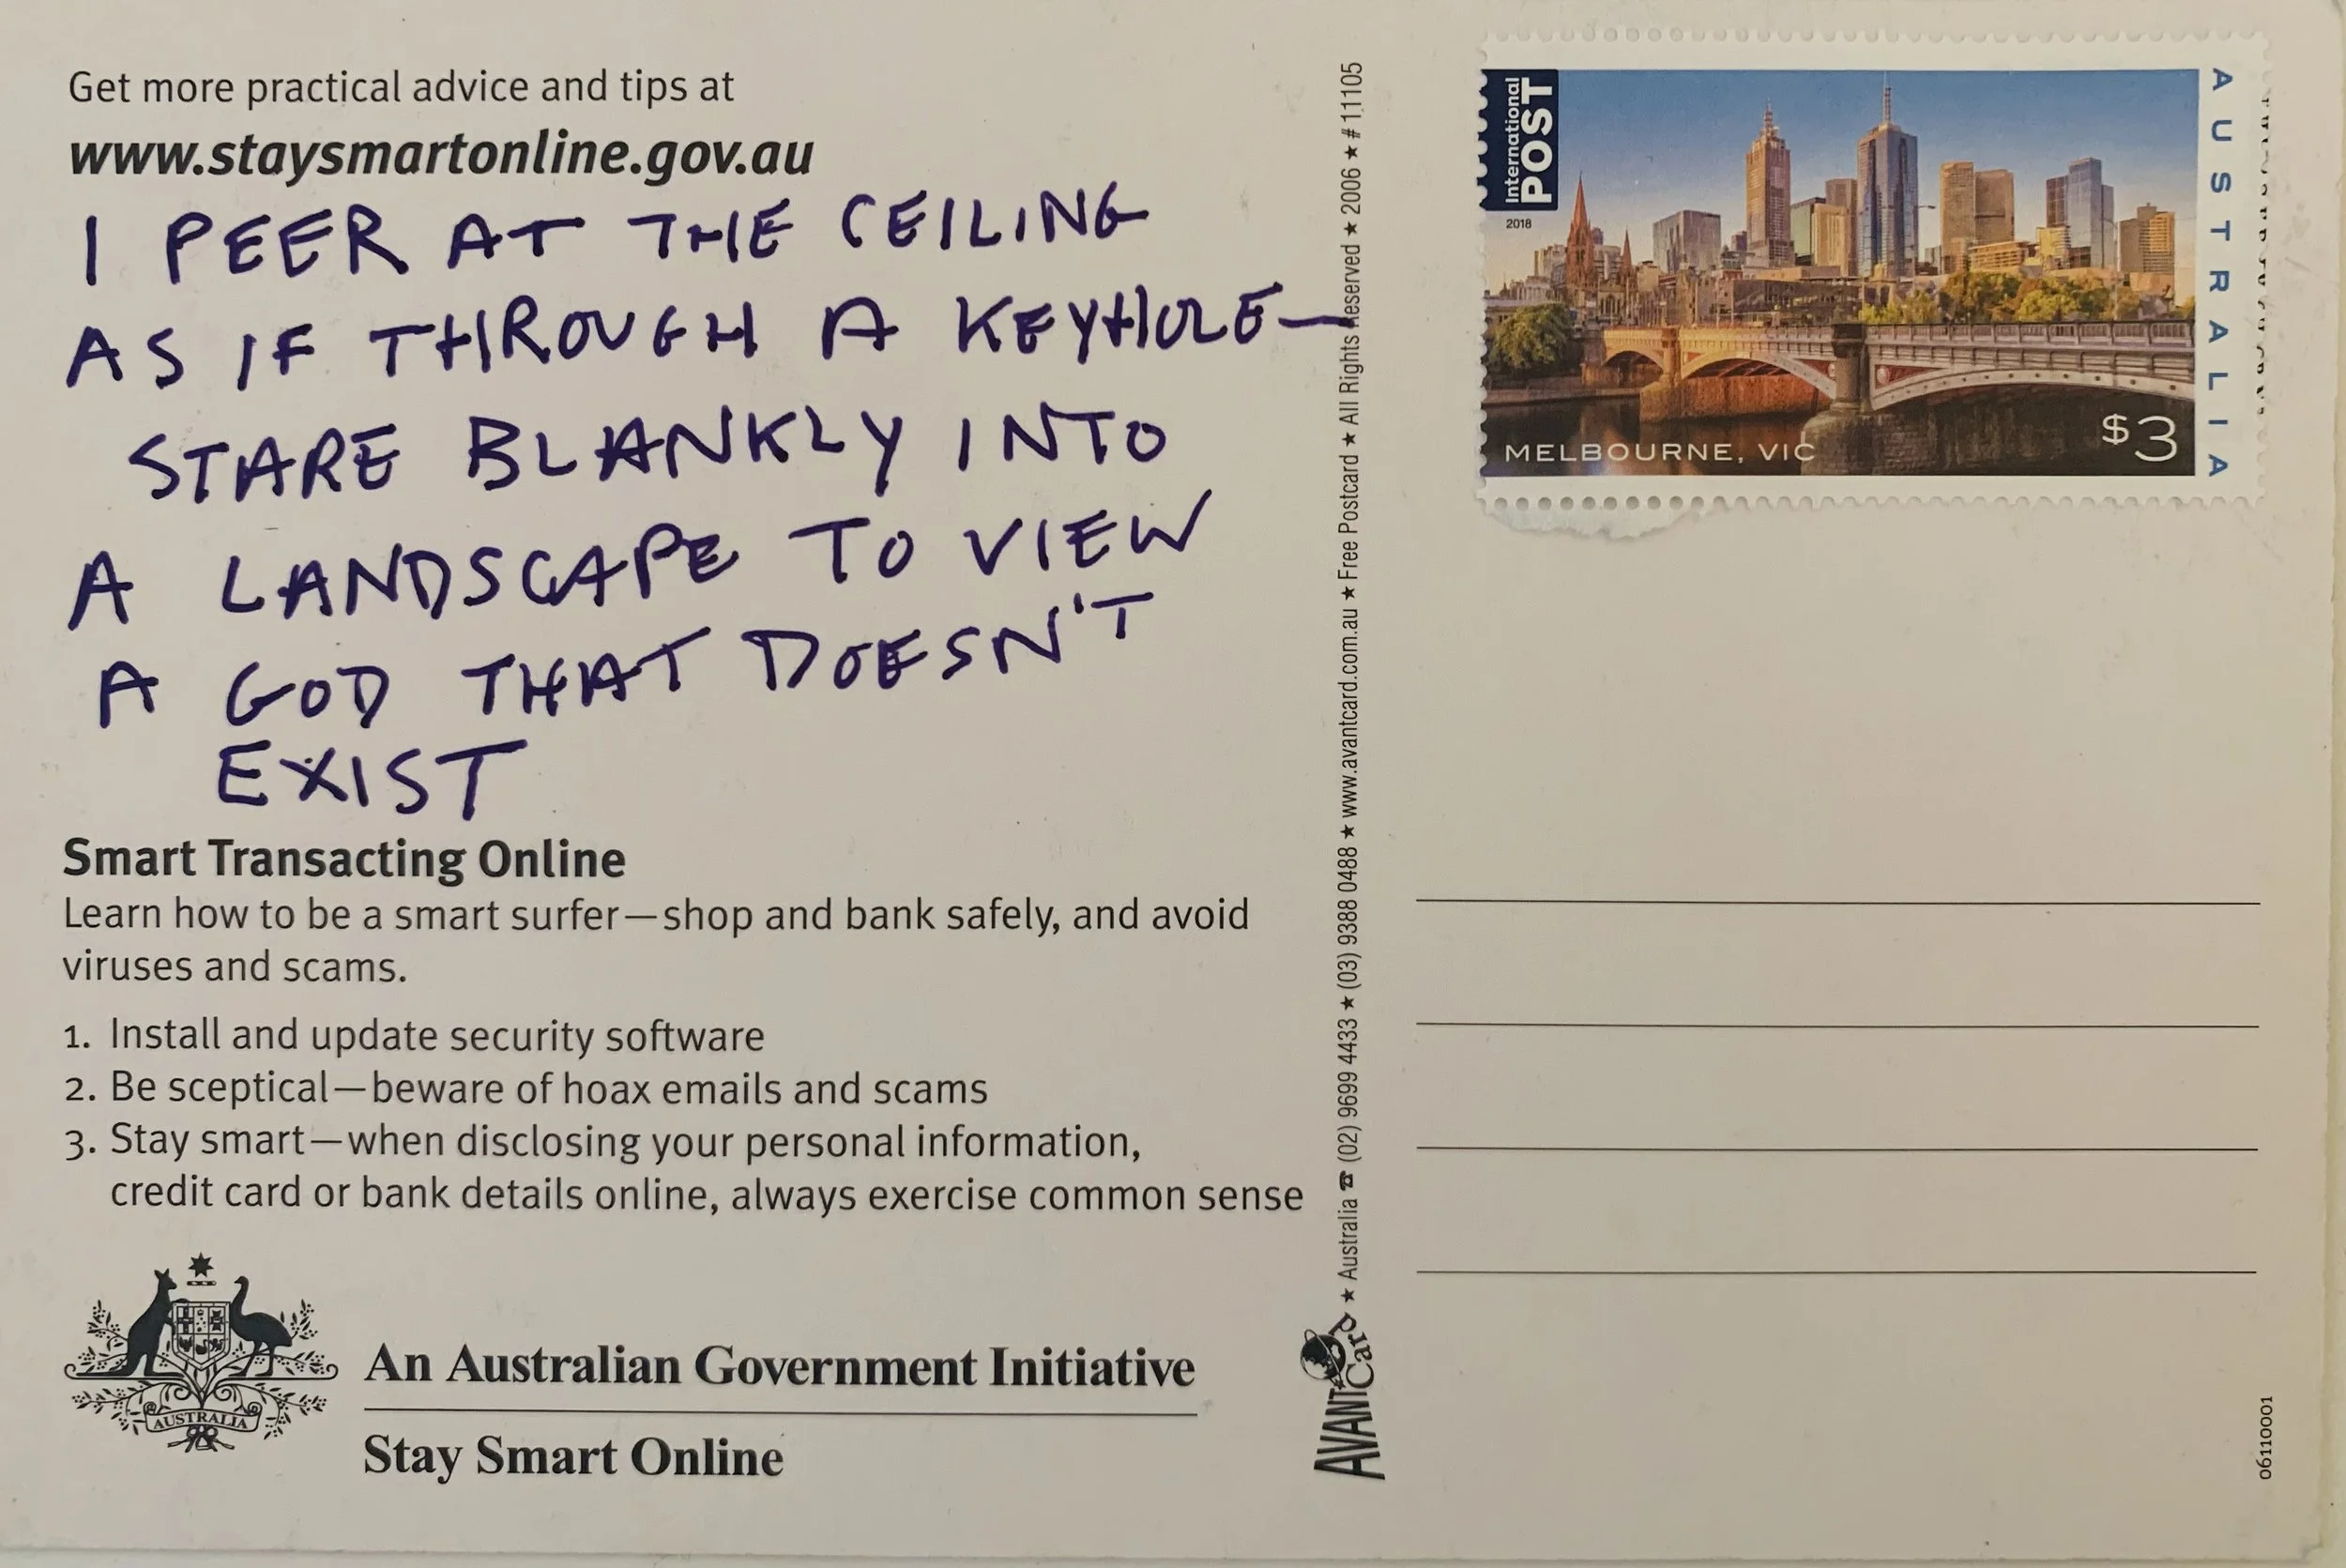 Get more practical advice and tips at
www.staysmartonline.gov.au
I PEER AT THE CEILING
AS IF THROUGH A KEYHOLE—
STARE BLANKLY INTO
A LANDSCAPE TO VIEW
A GOD THAT DOESN'T
EXIST
Smart Transacting Online
Learn how to be a smart surfer—shop and bank safely, and avoid
viruses and scams.
1. Install and update security software
2. Be sceptical—beware of hoax emails and scams
3. Stay smart—when disclosing your personal information,
credit card or bank details online, always exercise common sense
AUSTRALIA
An Australian Government Initiative
Stay Smart Online
AVANTCard ★ Australia ☎ (02) 9699 4433 ★ (03) 9388 0488 ★ www.avantcard.com.au ★ Free Postcard ★ All Rights Reserved ★ 2006 ★ #11105
International
POST
2018
MELBOURNE, VIC
$3
AUSTRALIA
06110001